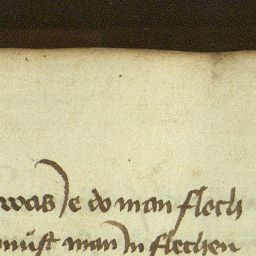 was e do man floch
müst man in flechen